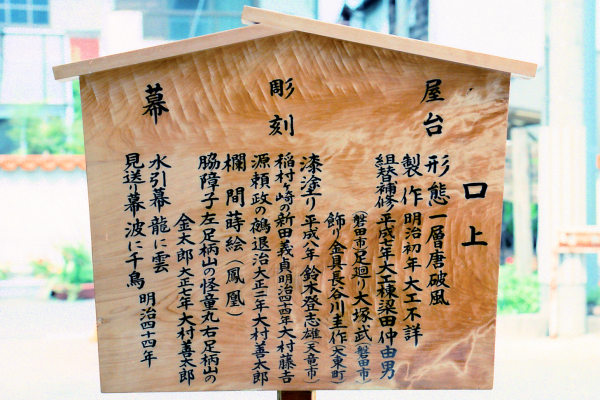 口上
屋台
形態 一層唐破風
製作 明治初年 大工不詳
組替補修 平成七年 大工棟梁 田仲由男
(磐田市) 足廻り 大塚 武(磐田市)
飾り金具 長谷川圭作(大東町)
漆塗り 平成八年 鈴木登志雄(天竜市)
彫刻
稲村ヶ崎の新田義貞 明治四十四年 大村藤吉
源頼政の鵺退治 大正二年 大村善太郎
欄間蒔絵(鳳凰)
脇障子 左足柄山の怪童丸 右足柄山の
金太郎 大正六年 大村善太郎
幕
水引幕 龍に雲
見送り幕 波に千鳥 明治四十四年